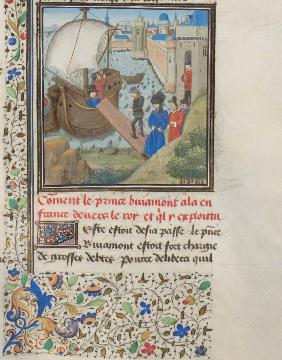 Coment le prince buiamont ala en
france deuers le roy et ql y exploitta
Este estoit desia passe le prīce
Buiamont estoit fort chargie
de grosses debtes Pource delibera quil